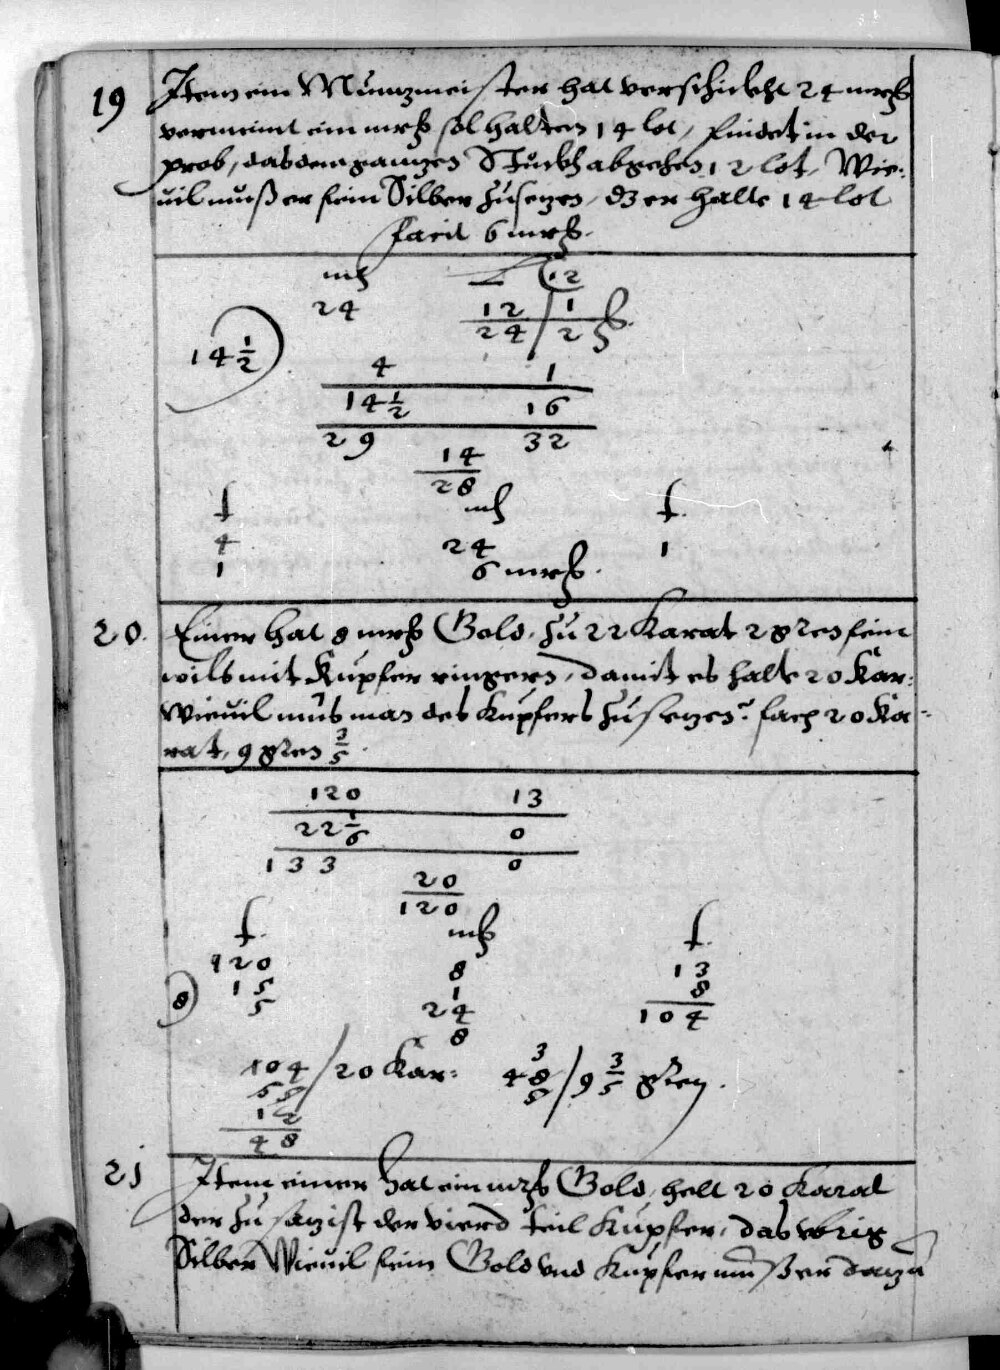 19 Item ein Müntzmeister hat verschickht 24 mrkh
vermeint ein mrkh sol halten 14 lot, findet in der
prob, das dem gantzen Stuckh abgehen 12 lot, Wie-
uil muß er fein Silber zusetzen, dz er halte 14 lot
facit 6 mrkh.
mh 12
24 12/24 / 1/2
14 1/2
4 1
14 1/2 16
29 32
14
28
f mh f
4 24 1
1 6 mrkh.
20. Einer hat 8 mrkh Gold, zu 22 Karat 2 gren fein
wils mit Kupfer ringern, damit es halte 20 Kar:
Wieuil mus man des Kupfers zusetzen? fac 20 Ka-
rat, 9 gren 3/5.
120 13
22 1/6 0
133 0
20
120
f. mh f.
120 8 13
15 1 8
8) 5 24 104
8
104 / 20 Kar: 3
48 / 9 3/5 gren.
12
48
21 Item einer hat ein mrkh Gold, helt 20 Karat
der zusatz ist der vierd teil Kupfer, das vbrig
Silber Wieuil fein Gold vnd Kupfer muß er dazu